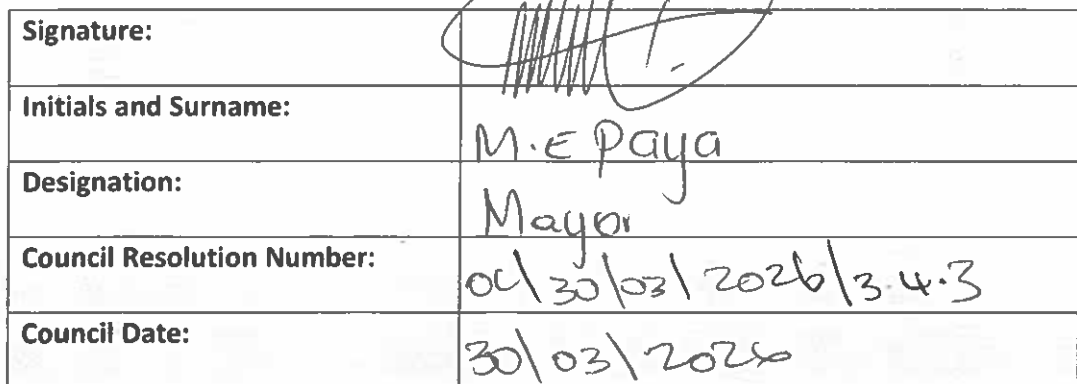 Signature:
Initials and Surname: M.E Paya
Designation: Mayor
Council Resolution Number: OC\30\03\2026\3.4.3
Council Date: 30\03\2026